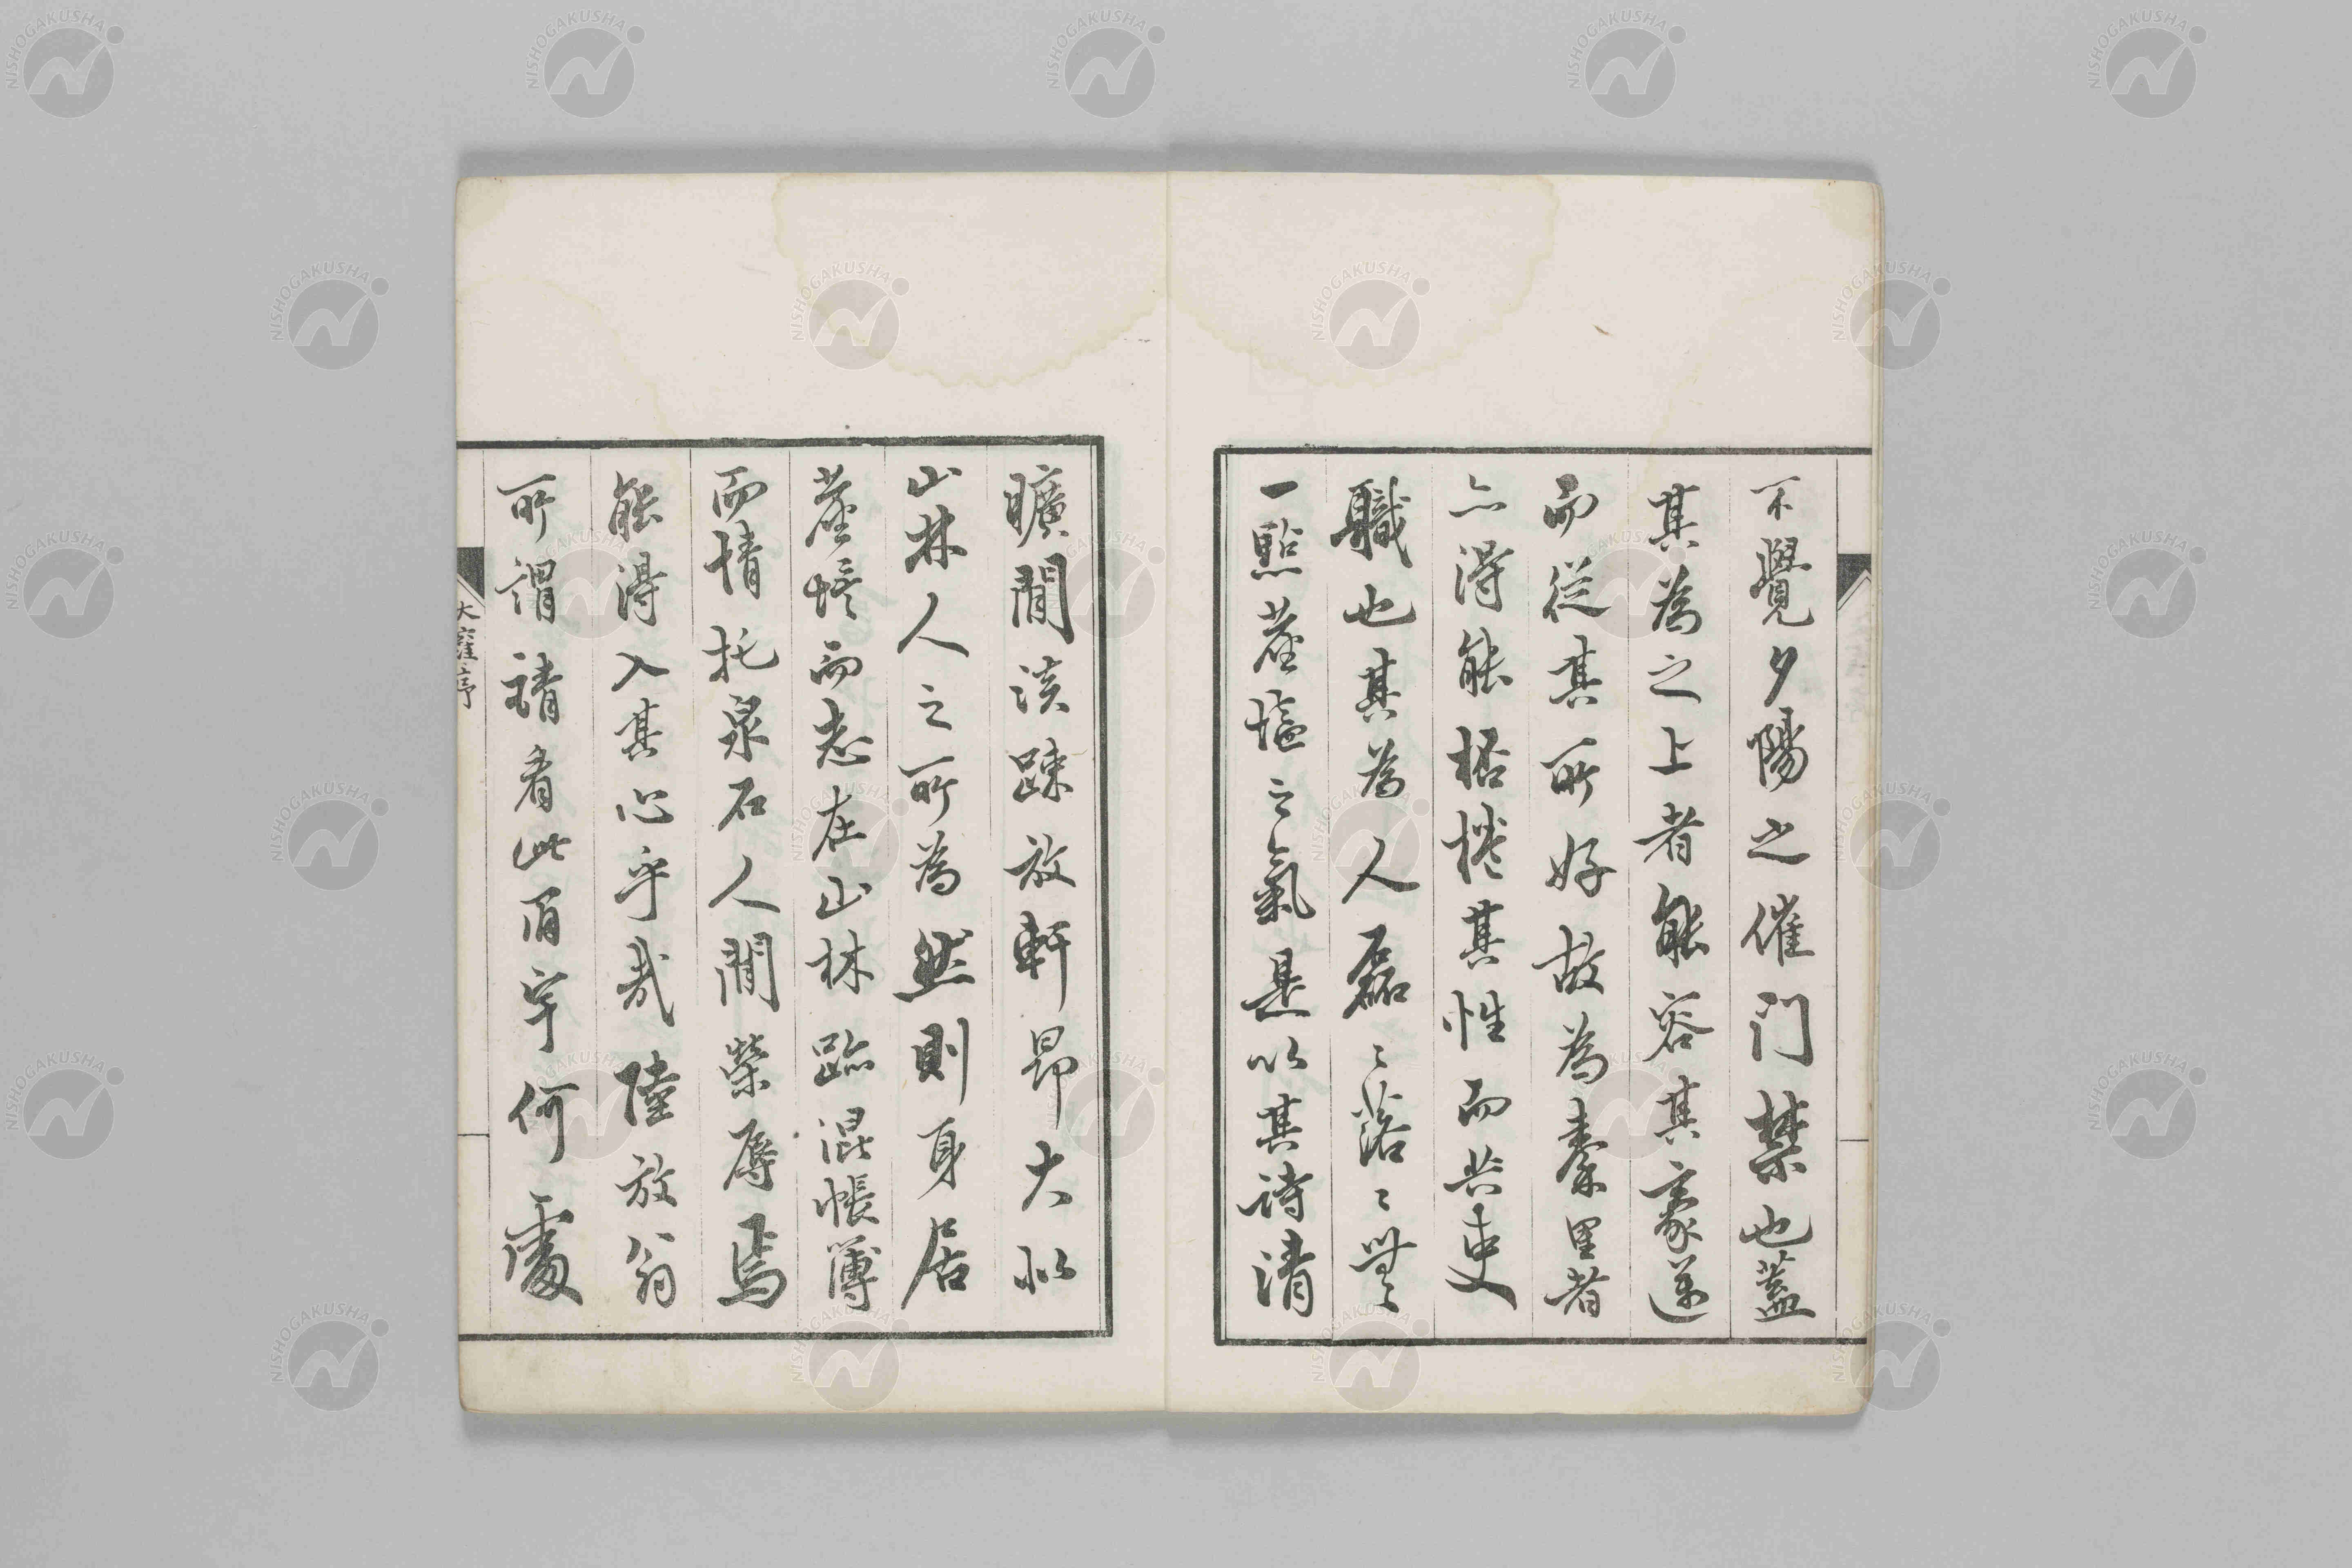 不覺夕陽之催門禁也蓋
其為之上者能容其豪邁
而從其所好故為秦里者
亦得能桮棬其性而共吏
職也其為人磊〻落〻無
一點塵壒之氣是以其詩清
曠閒淡疎放軒昂大似
山林人之所為然則身居
塵㙜而志在山林跡混帳簿
而情托泉石人間榮辱焉
能得入其心乎哉陸放翁
所謂請看此眉宇何處
大窪序
NISHOGAKUSHA